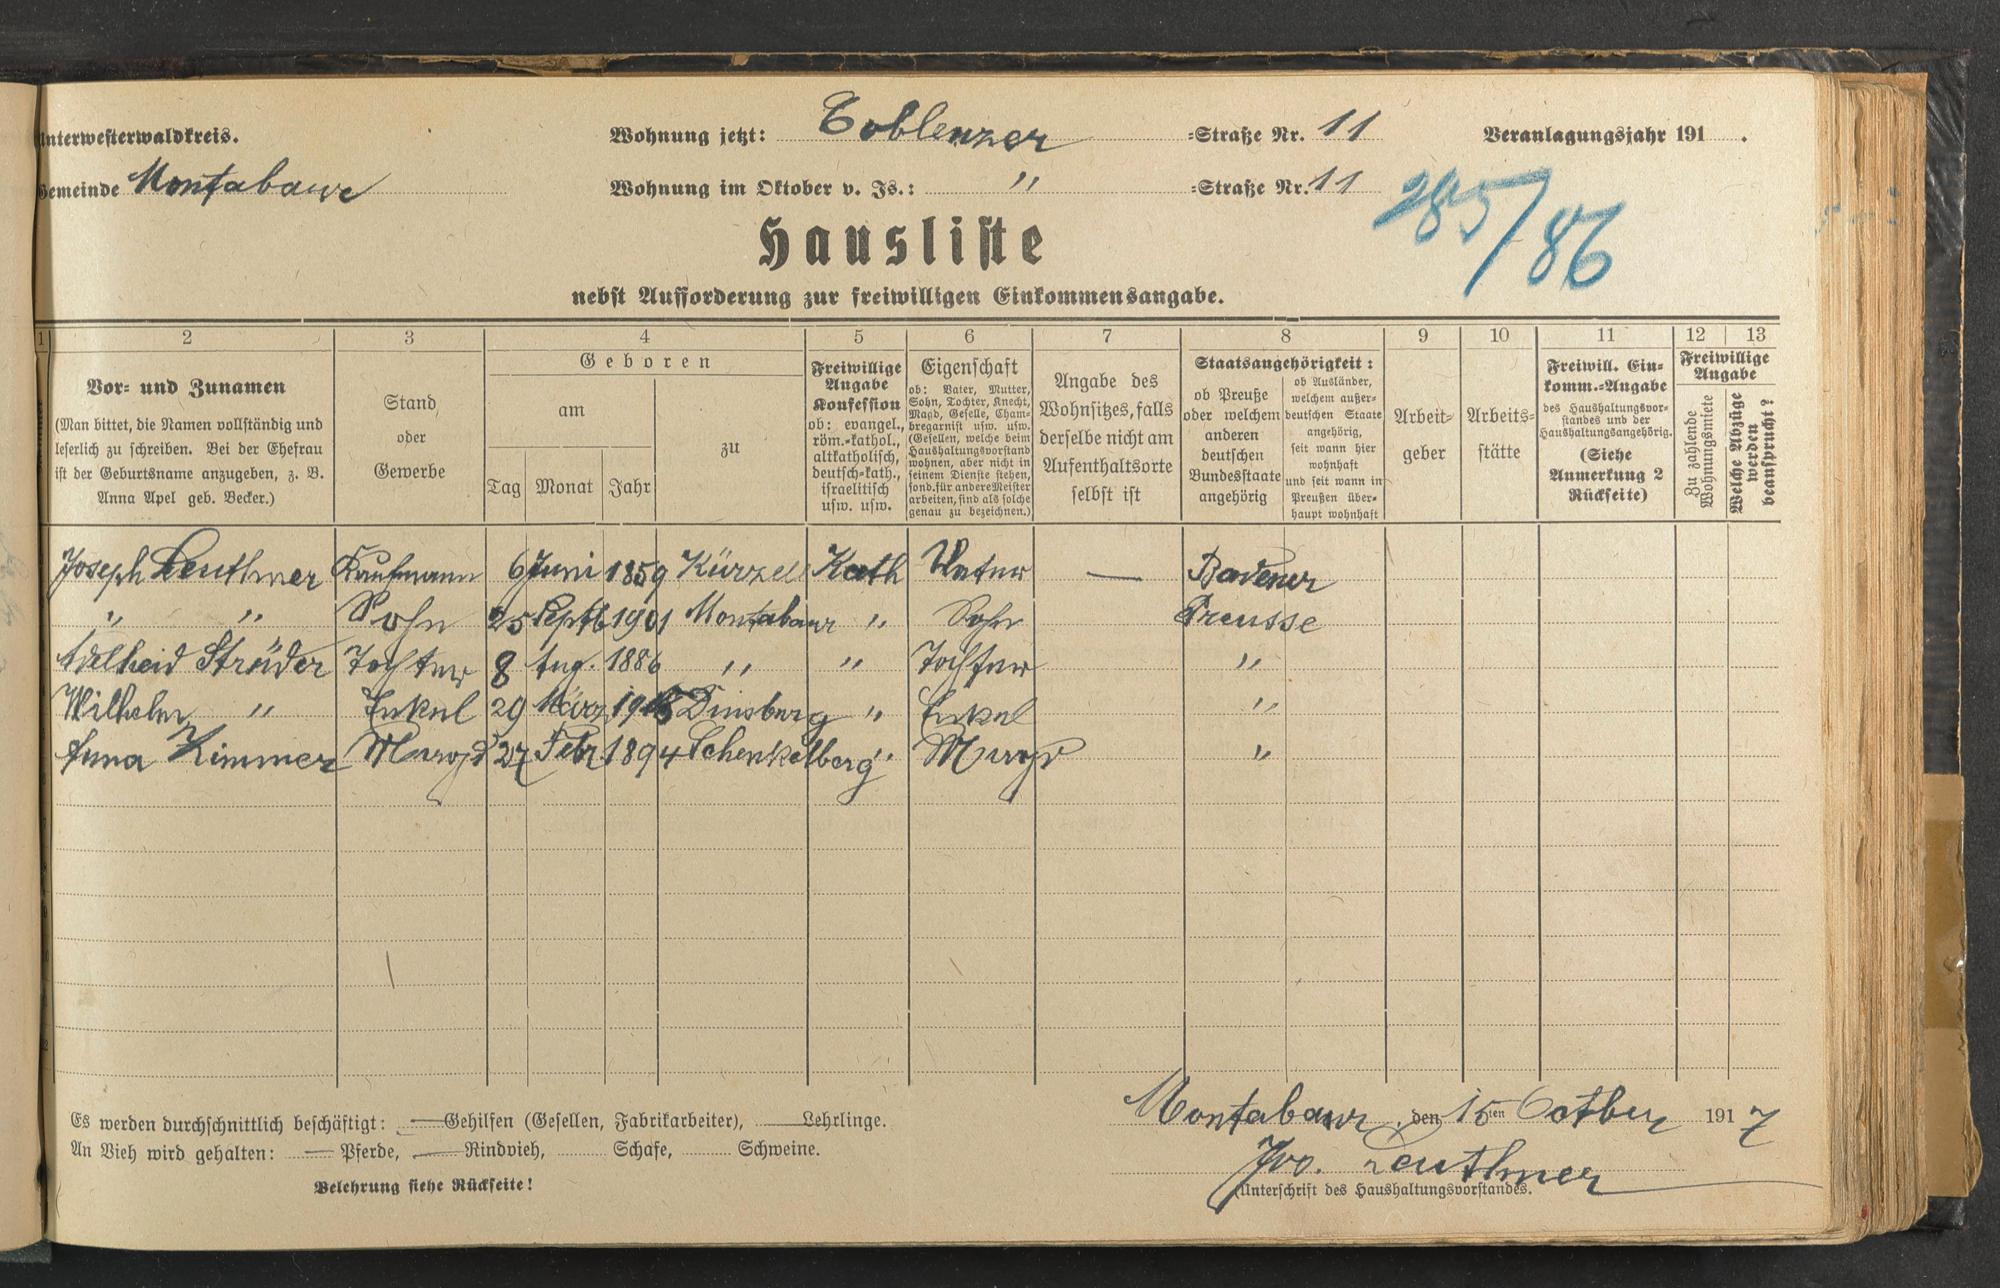 Unterwesterwaldkreis. Wohnung jetzt: Coblenzer =Straße Nr. 11 Veranlagungsjahr 191 .
Gemeinde Montabaur Wohnung im Oktober v. Js.: " =Straße Nr. 11
285/86
Hausliste
nebst Aufforderung zur freiwilligen Einkommensangabe.
1 2 3 4 5 6 7 8 9 10 11 12 13
Vor= und Zunamen
(Man bittet, die Namen vollständig und
leserlich zu schreiben. Bei der Ehefrau
ist der Geburtsname anzugeben, z. B.
Anna Apel geb. Becker.)
Stand
oder
Gewerbe
Geboren
am
Tag Monat Jahr
zu
Freiwillige
Angabe
Konfession
ob: evangel.,
röm.=kathol.,
altkatholisch,
deutsch=kath.,
israelitisch
usw. usw.
Eigenschaft
ob: Vater, Mutter,
Sohn, Tochter, Knecht,
Magd, Geselle, Cham=
bregarnist usw. usw.
(Gesellen, welche beim
Haushaltungsvorstand
wohnen, aber nicht in
seinem Dienste stehen,
sond. für andere Meister
arbeiten, sind als solche
genau zu bezeichnen.)
Angabe des
Wohnsitzes, falls
derselbe nicht am
Aufenthaltsorte
selbst ist
Staatsangehörigkeit:
ob Preuße
oder welchem
anderen
deutschen
Bundesstaate
angehörig
ob Ausländer,
welchem außer=
deutschen Staate
angehörig,
seit wann hier
wohnhaft
und seit wann in
Preußen über=
haupt wohnhaft
Arbeit=
geber
Arbeits=
stätte
Freiwill. Ein=
komm.=Angabe
des Haushaltungsvor=
standes und der
Haushaltungsangehörig.
(Siehe
Anmerkung 2
Rückseite)
Freiwillige
Angabe
Zu zahlende
Wohnungsmiete
Welche Abzüge
werden
beansprucht?
Joseph Leuthner Kaufmann 6 Juni 1859 Kürzell Kath Vater — Badener
" " Sohn 25 Septb 1901 Montabaur " Sohn Preusse
Adelheid Ströder Tochter 8 Aug. 1886 " " Tochter "
Wilhelm " Enkel 29 März Duisburg " Enkel "
Anna Zimmer Magd 27 Febr. 1894 Schenkelberg " Magd "
Es werden durchschnittlich beschäftigt: — Gehilfen (Gesellen, Fabrikarbeiter), — Lehrlinge.
An Vieh wird gehalten: — Pferde, — Rindvieh, Schafe, Schweine.
Belehrung siehe Rückseite!
Montabaur, den 15ten October 1917
Jos. Leuthner
Unterschrift des Haushaltungsvorstandes.